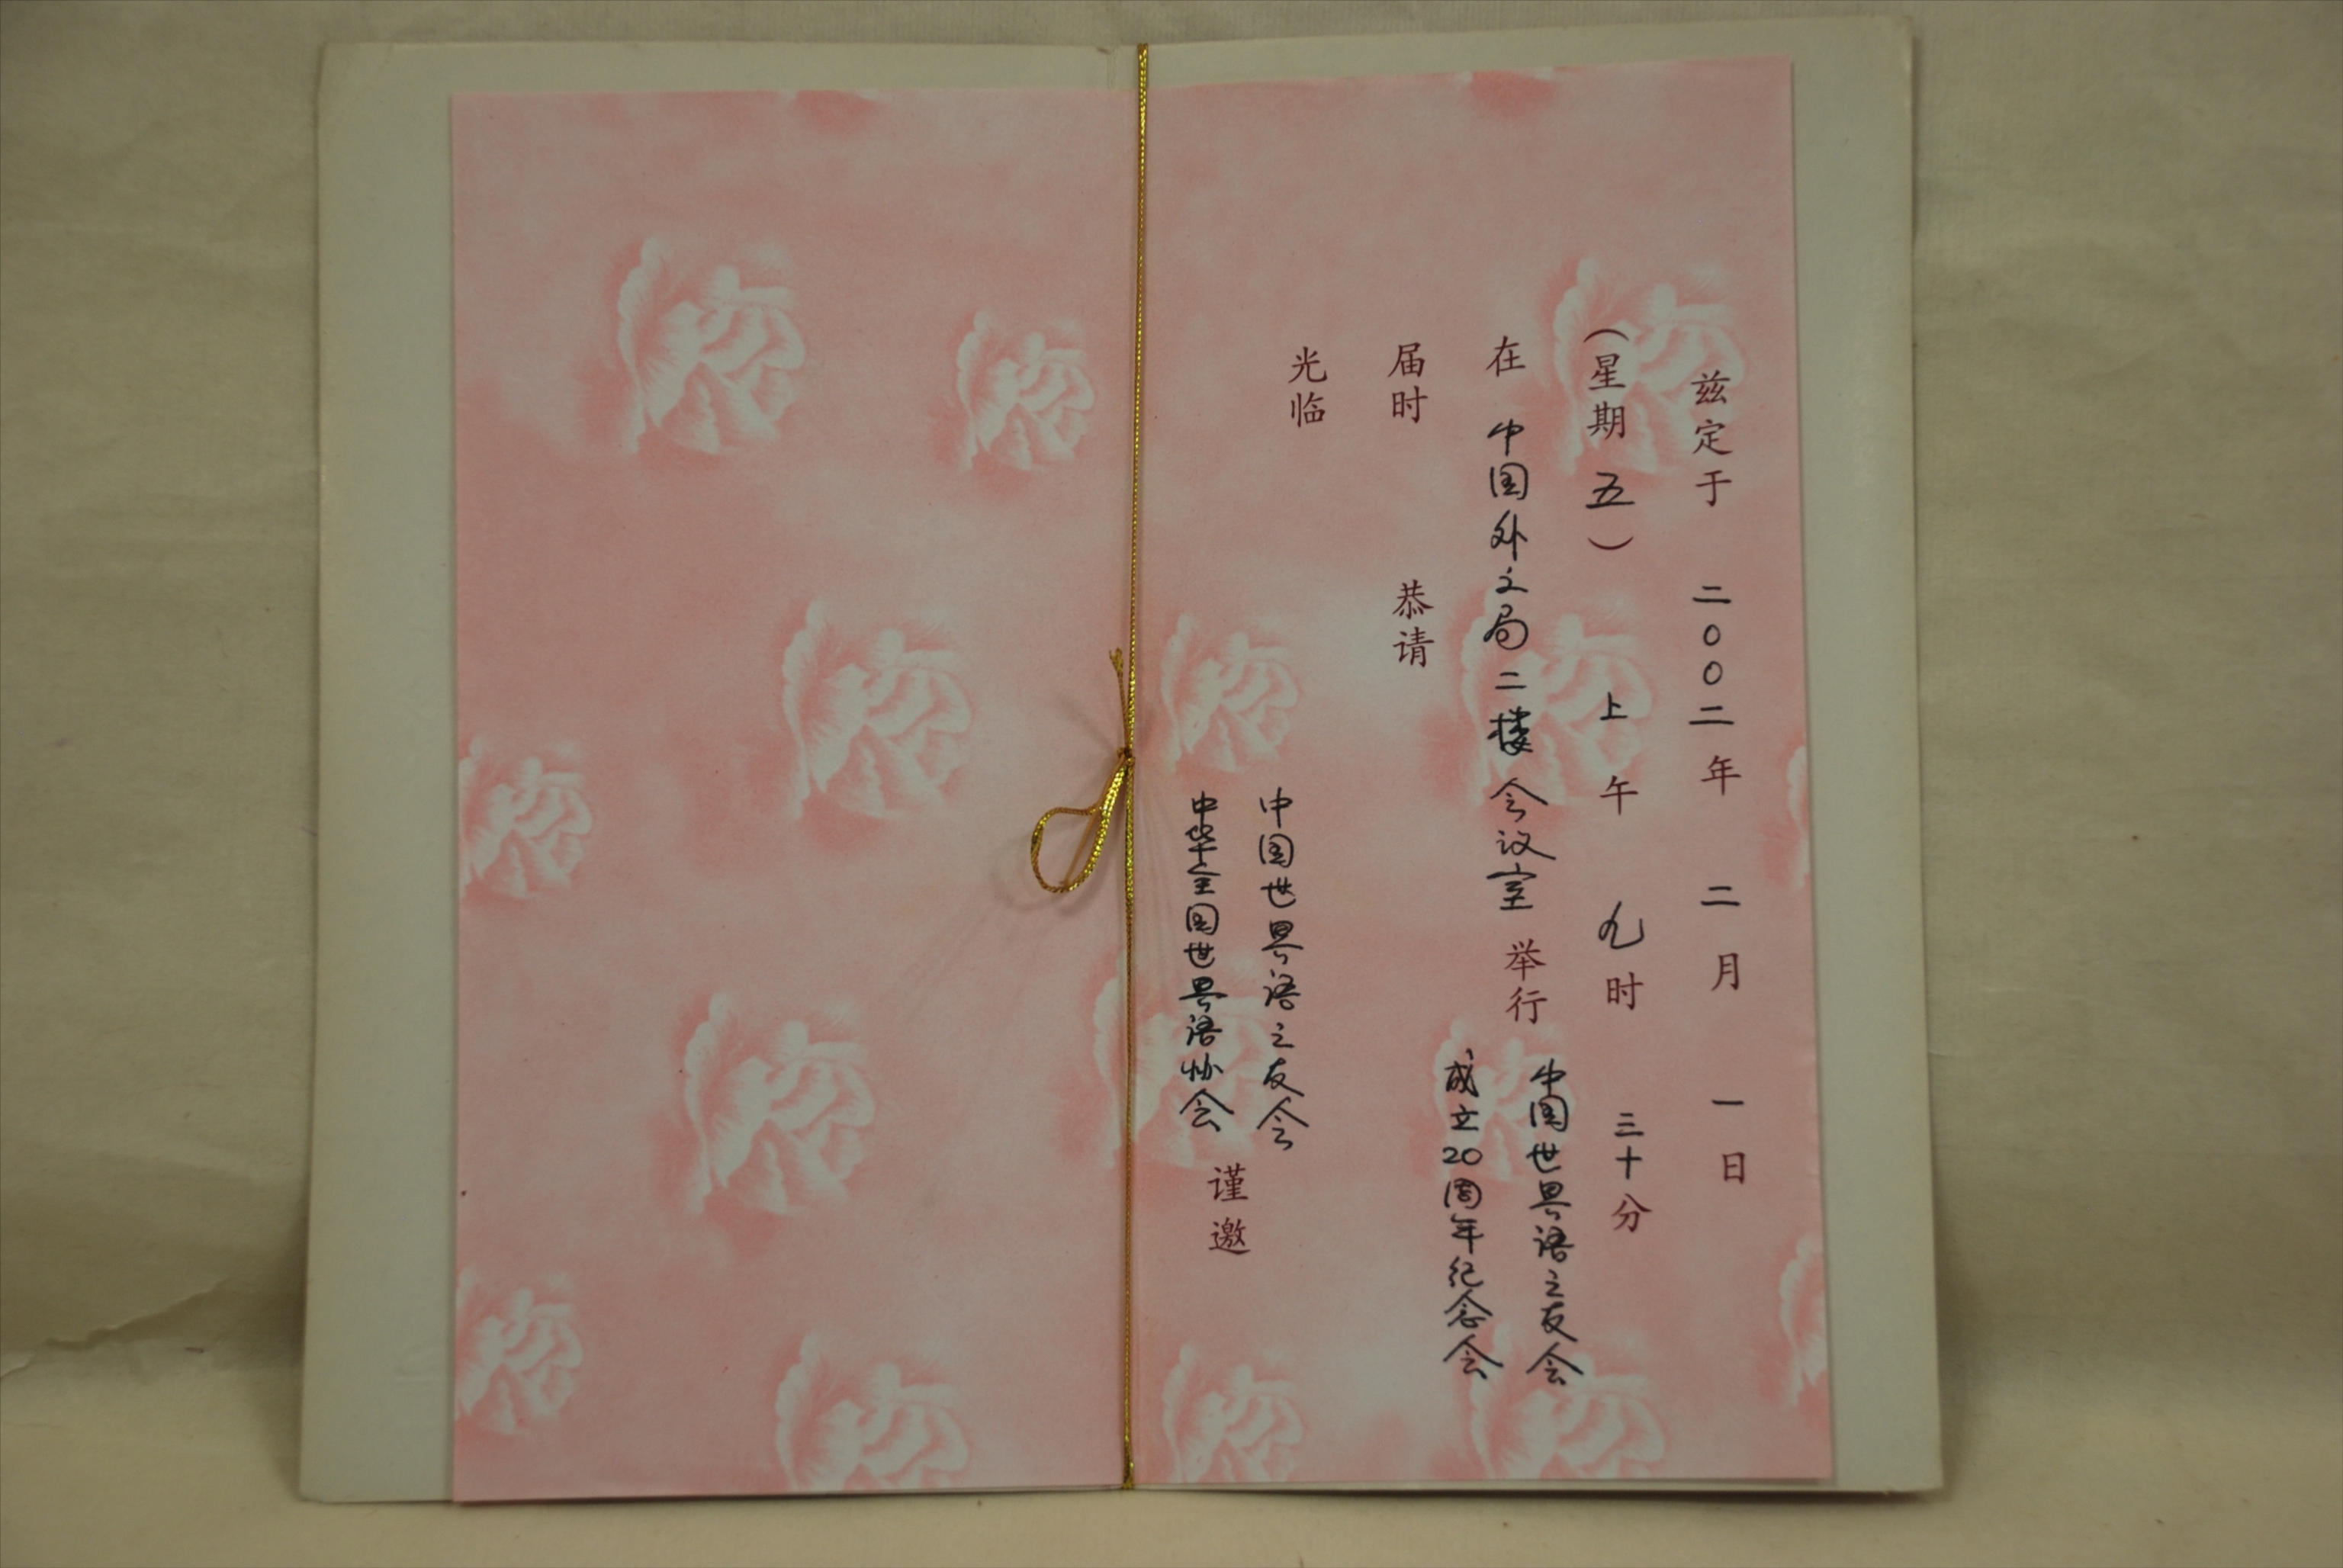 兹定于 二〇〇二年 二月 一日
（星期五） 上午 九时 三十分
在 中国外文局二楼会议室 举行 中国世界语之友会
成立20周年纪念会
届时 恭请
光临
中国世界语之友会
中华全国世界语协会
谨邀